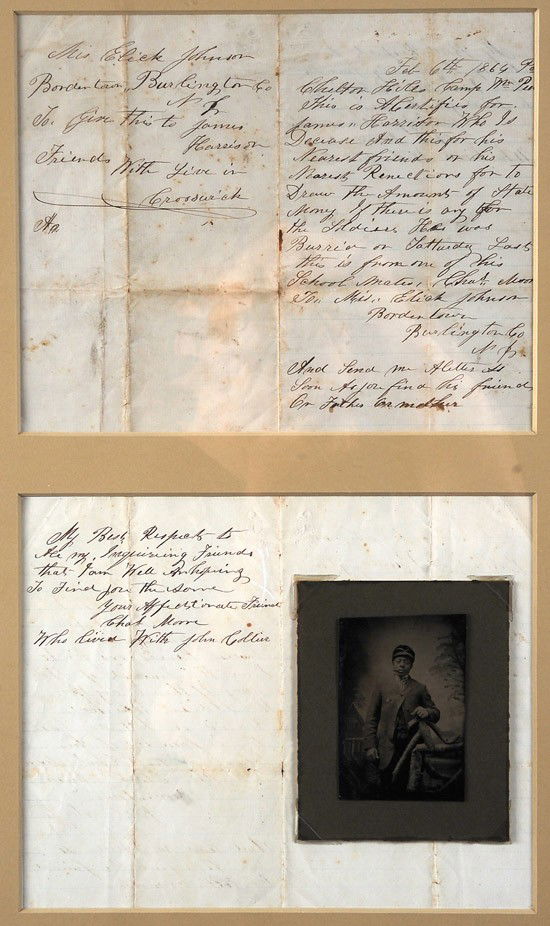 Mis, Elick Johnson
Bordentown, Burlington Co
N J
To Give this to James
Harrison
Friends With Live in
Crosswick
Feb 6th 1864 Pa
Chelton Hiles Camp Wm Pen
This is A Sertifies for
James Harrison Who Is
Desease And this for his
Nearest friends or his
Nearest Renections for to
Draw the Amount of State
Mony if there is any for
the Soldiers He was
Burried on Satturday Last
this is from one of his
School Mates, Chas. Moore
To, Mis, Elick Johnson
Bordentown
Burlington Co
N J
And Send me A letter as
Soon As you find his friends
Or Father Or mother
My Best Respects to
All my Inquiring Friends
that I am Well And hoping
To Find you the Same
Your Affectionate Friend
Chas Moore
Who lived With John Collier